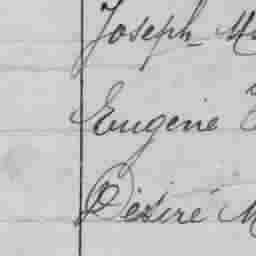 Joseph
Eugène
Désiré